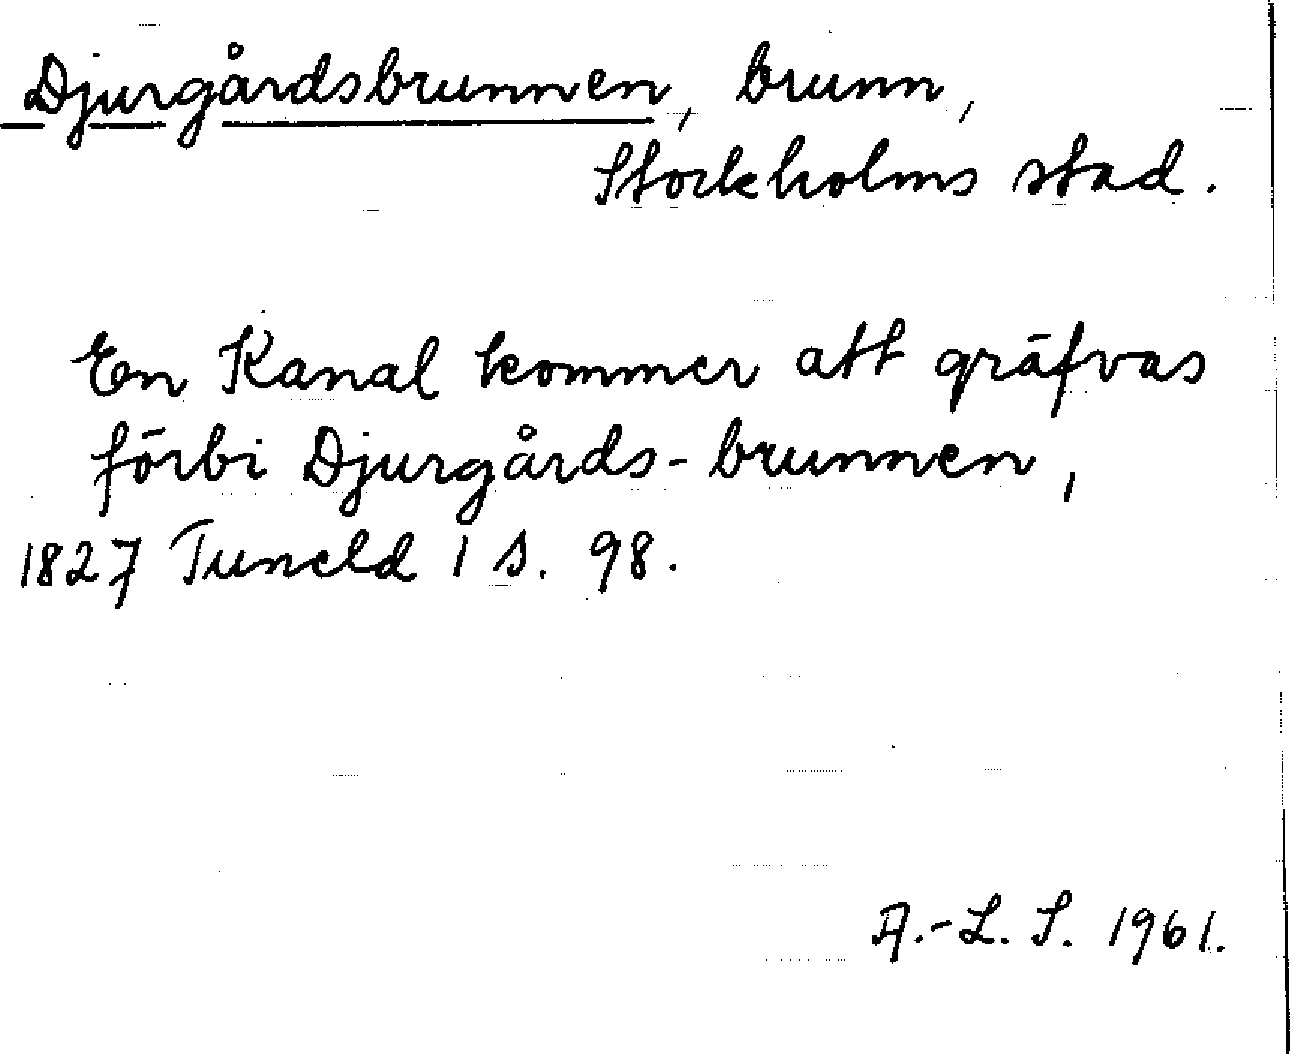 Djurgårdsbrunnen, brunn,
Stockholms stad.
En Kanal kommer att gräfvas
förbi Djurgårds-brunnen,
1827 Tuneld 1 s. 98.
A.-L. S. 1961.